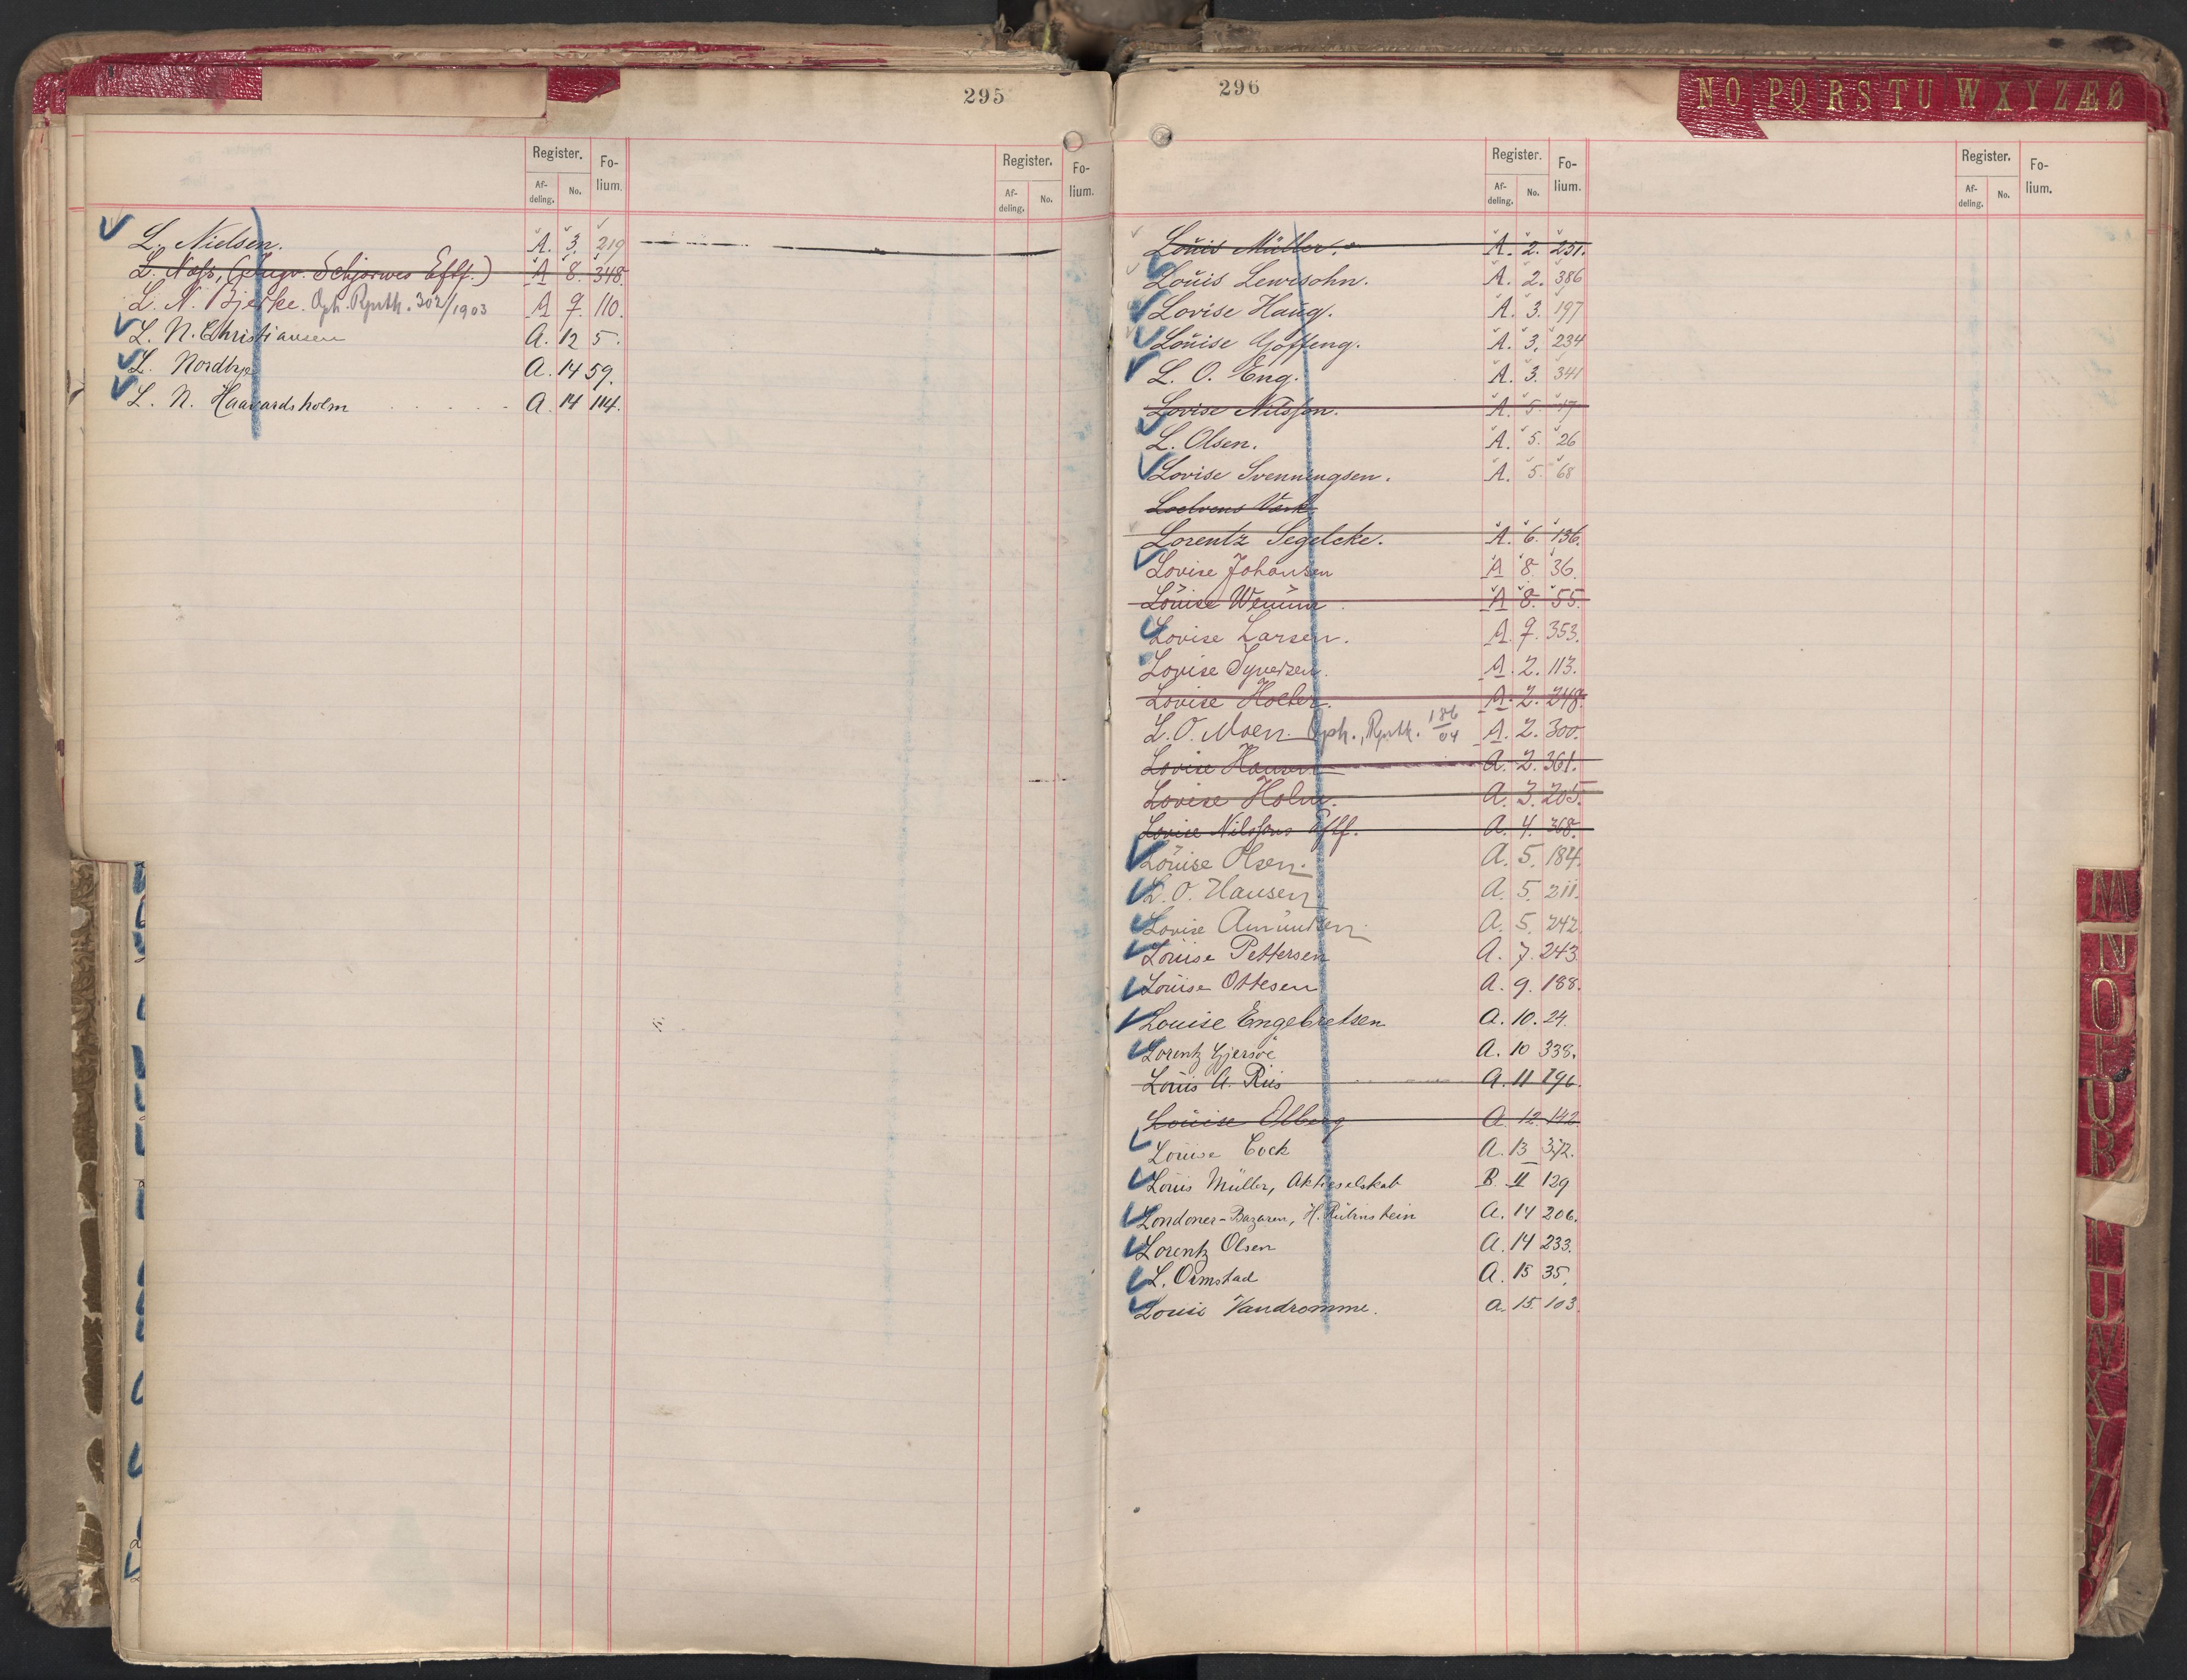 295
Register. Fo-lium. Register. Fo-lium.
Af-deling. No. Af-deling. No.
L. Nielsen. A. 3. 219
L. Næss, (Ingv. Schjørwes Eftf.) A 8. 348.
L. N. Bjerke. Oph. Rgnth. 302/1903 A 9. 110.
L. N. Christiansen A. 12 5.
L. Nordbye A. 14 59.
L. N. Haavardsholm A. 14 114.
296
N O P Q R S T U W X Y Z Æ Ø
Register. Fo-lium. Register. Fo-lium.
Af-deling. No. Af-deling. No.
Louis Müller. A. 2. 251.
Louis Lewisohn. A. 2. 386
Lovise Haug. A. 3. 197
Louise Goffeng. A. 3. 234
L. O. Eng. A. 3. 341
Lovise Nilsson. A. 5. 17
L. Olsen. A. 5. 26
Lovise Svenningsen. A. 5. 68
Loelvens Værk
Lorentz Segelcke. A. 6. 136.
Lovise Johansen A 8. 36.
Louise Wennm A 8. 55.
Lovise Larsen. A. 9. 353.
Lovise Syversen. A. 2. 113.
Lovise Holter. A. 2. 248.
L. O. Moen. Oph., Rgnth. 186/04 A. 2. 300.
Lovise Hansen A. 2. 361.
Lovise Holm. A. 3. 205.
Lovise Nilssons Eftf. A. 4. 368.
Louise Olsen. A. 5. 184.
L. O. Hansen A. 5. 211.
Lovise Amundsen. A. 5. 242.
Louise Pettersen A. 7. 243
Louise Ottesen A. 9. 188.
Louise Engebretsen A. 10. 24.
Lorentz Gjersøe A. 10 338.
Louis A. Riis A. 11 196.
Louise Olberg A. 12. 142
Louise Cock A. 13 372.
Louis Müller, Aktieselskab B. II 129
Londoner-Bazaren, H. Rubinstein A. 14 206.
Lorentz Olsen A. 14 233.
L. Ormstad A. 15 35.
Louis Vandromme. A. 15. 103
M
N
O
P
R
U
W
X
Y